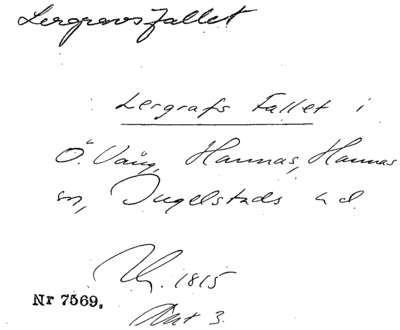 Lergravsfallet
Lergrafs Fallet i
Ö. Vång, Hannas, Hannas
sn, Ingelstads hd.
Ug. 1815
Nr 7569.
Akt 3.